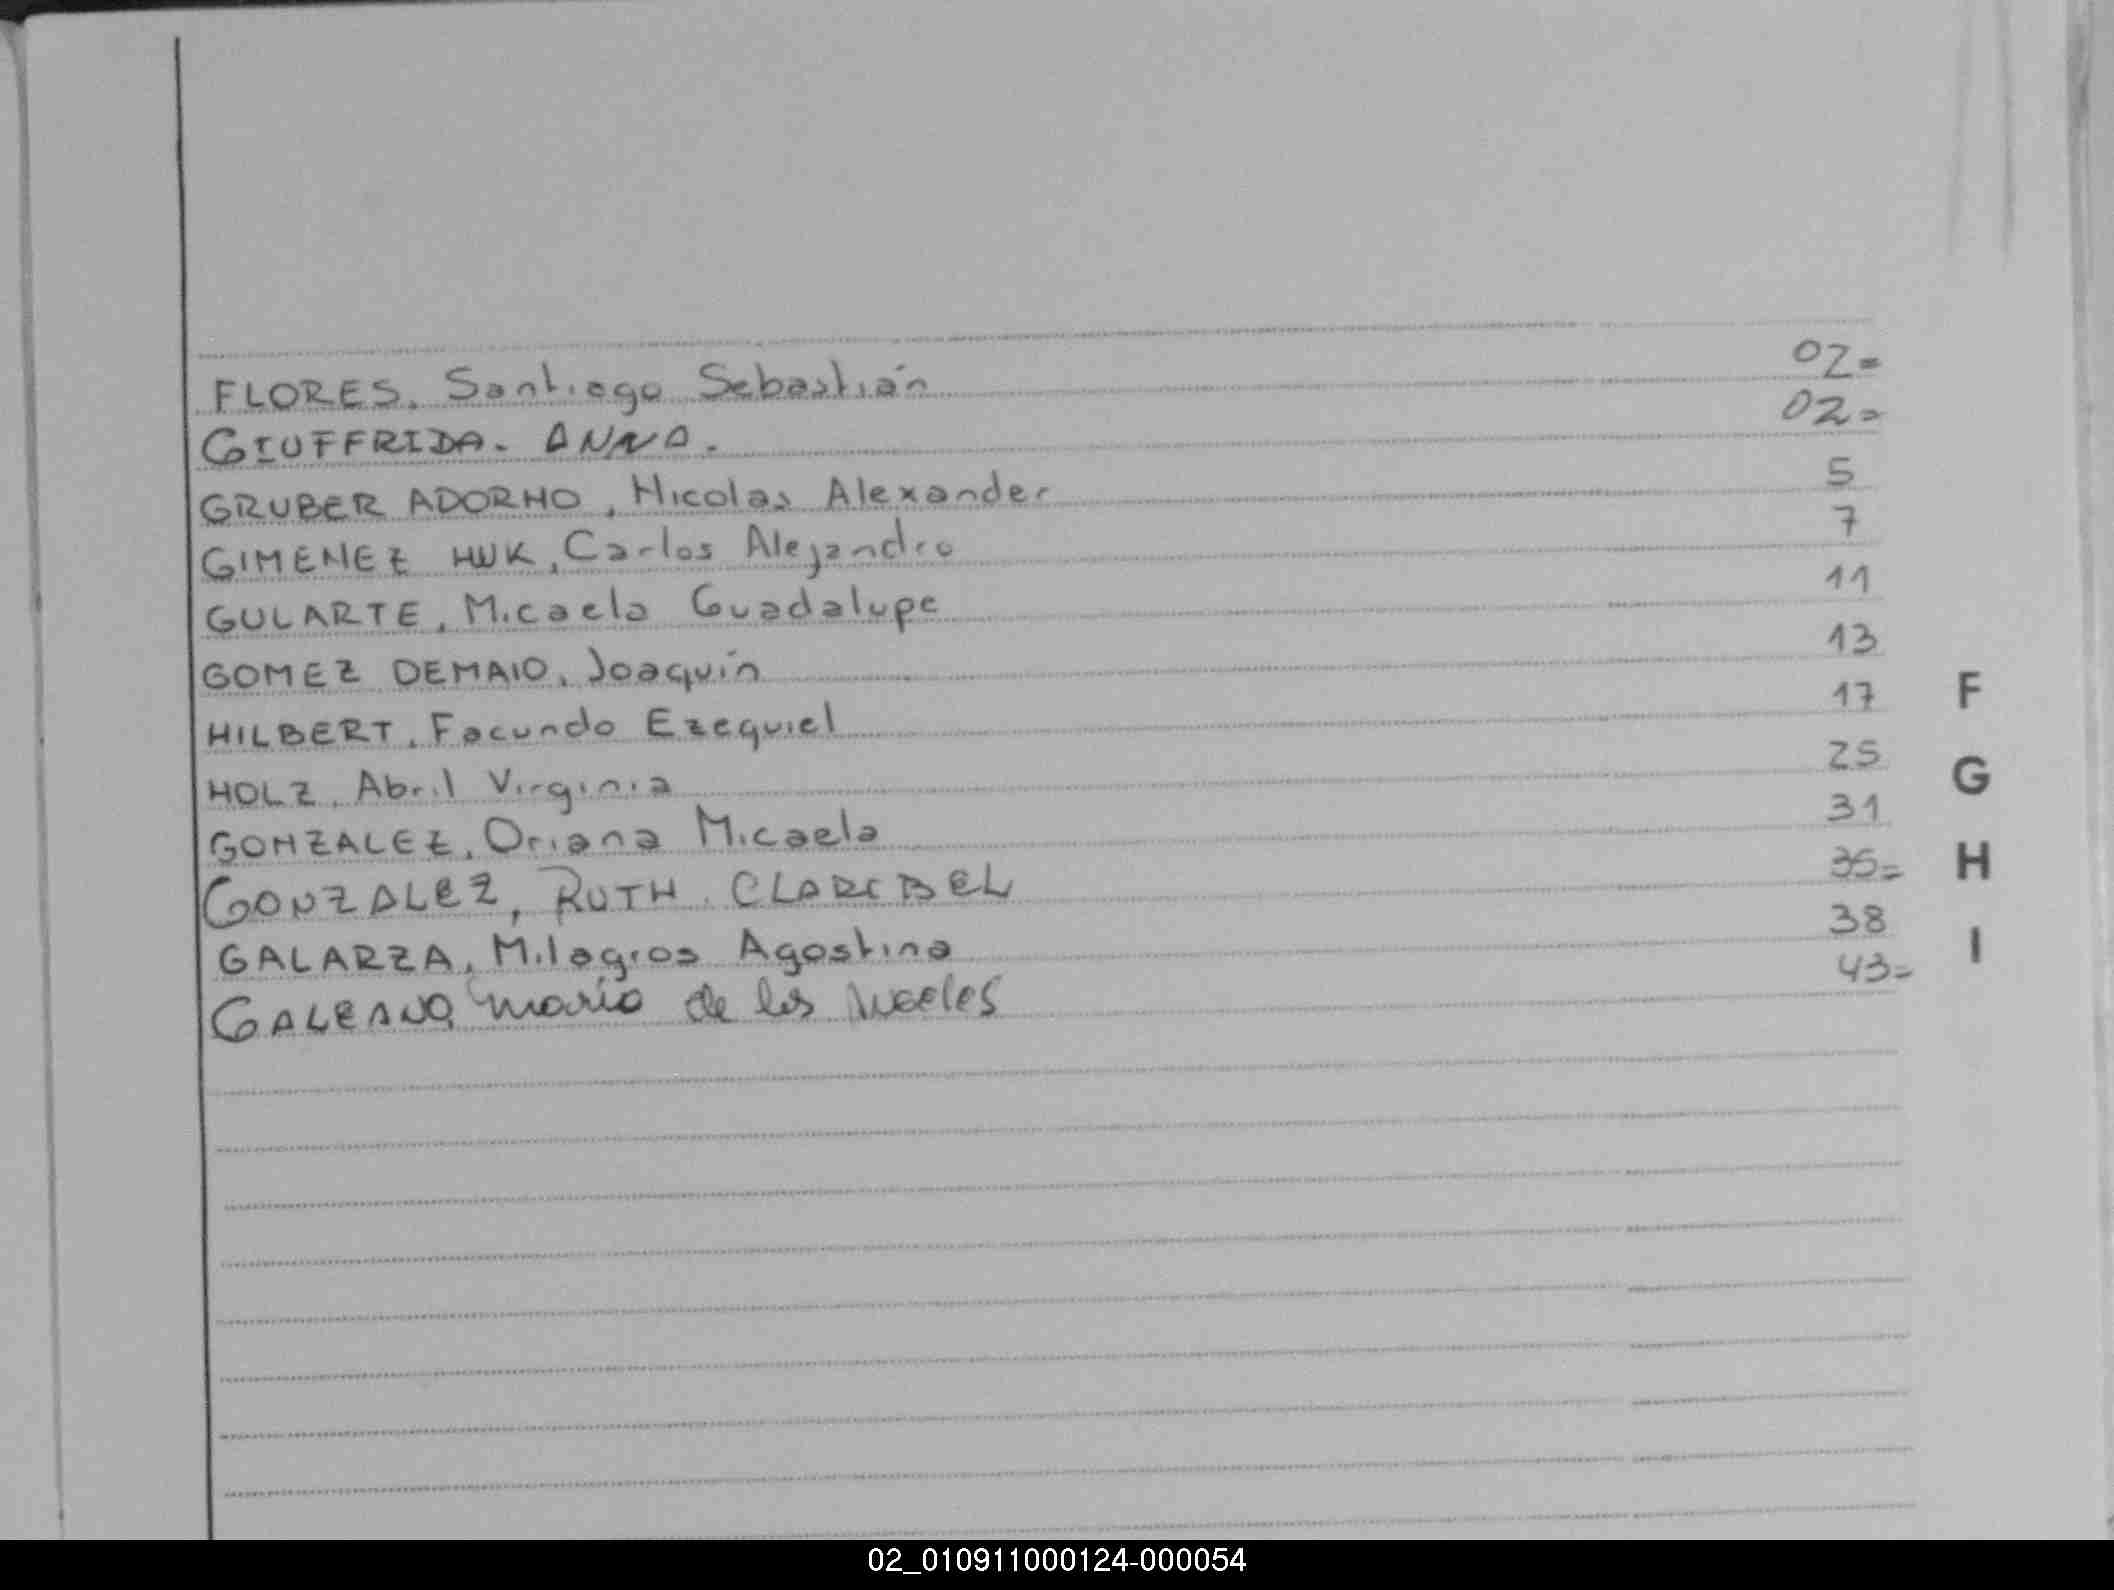 FLORES, Santiago Sebastián 02=
GIUFFRIDA. ANNA. 02=
GRUBER ADORNO, Nicolas Alexander 5
GIMENEZ HUK, Carlos Alejandro 7
GULARTE, Micaela Guadalupe 11
GOMEZ DEMAIO, Joaquín 13
HILBERT, Facundo Ezequiel 17
HOLZ, Abril Virginia 25
GONZALEZ, Oriana Micaela 31
GONZALEZ, RUTH. CLARIBEL 35=
GALARZA, Milagros Agostina 38
GALEANO, María de los Angeles 43=
F
G
H
I
02_010911000124-000054